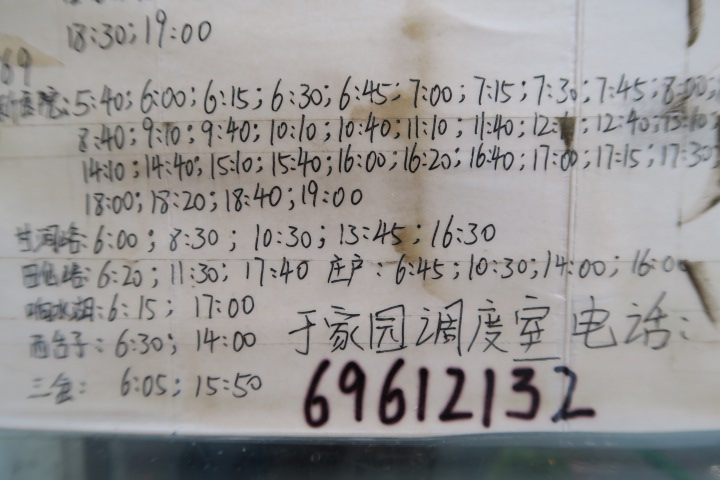 18:30;19:00
89
医院:5:40;6:00;6:15;6:30;6:45;7:00;7:15;7:30;7:45;8:00;
8:40;9:10;9:40;10:10;10:40;11:10;11:40;12:10;12:40;13:10
14:10;14:40;15:10;15:40;16:00;16:20;16:40;17:00;17:15;17:30
18:00;18:20;18:40;19:00
6:00;8:30;10:30;13:45;16:30
6:20;11:30;17:40 庄户:6:45;10:30;14:00;16:00
响水湖:6:15;17:00
西台子:6:30;14:00 于家园调度室电话:
三岔:6:05;15:50 69612132